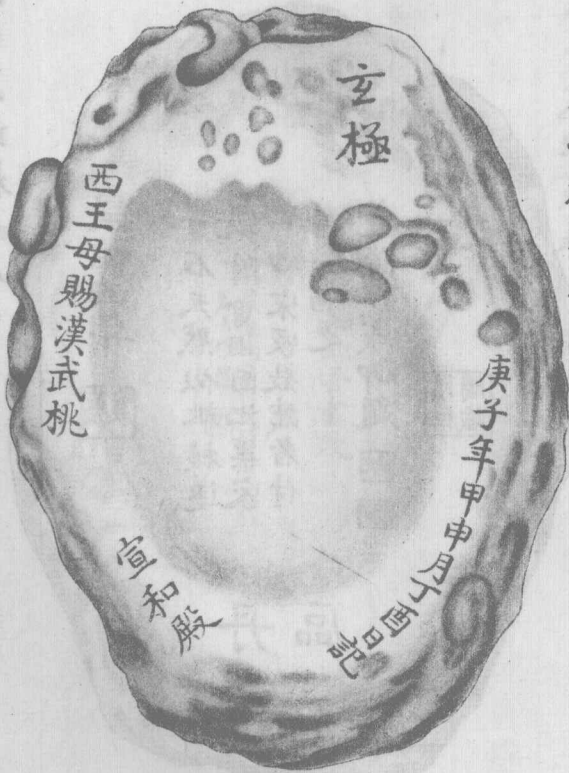 玄極
庚子年甲申月丁酉日記
西王母賜漢武桃
宣和殿